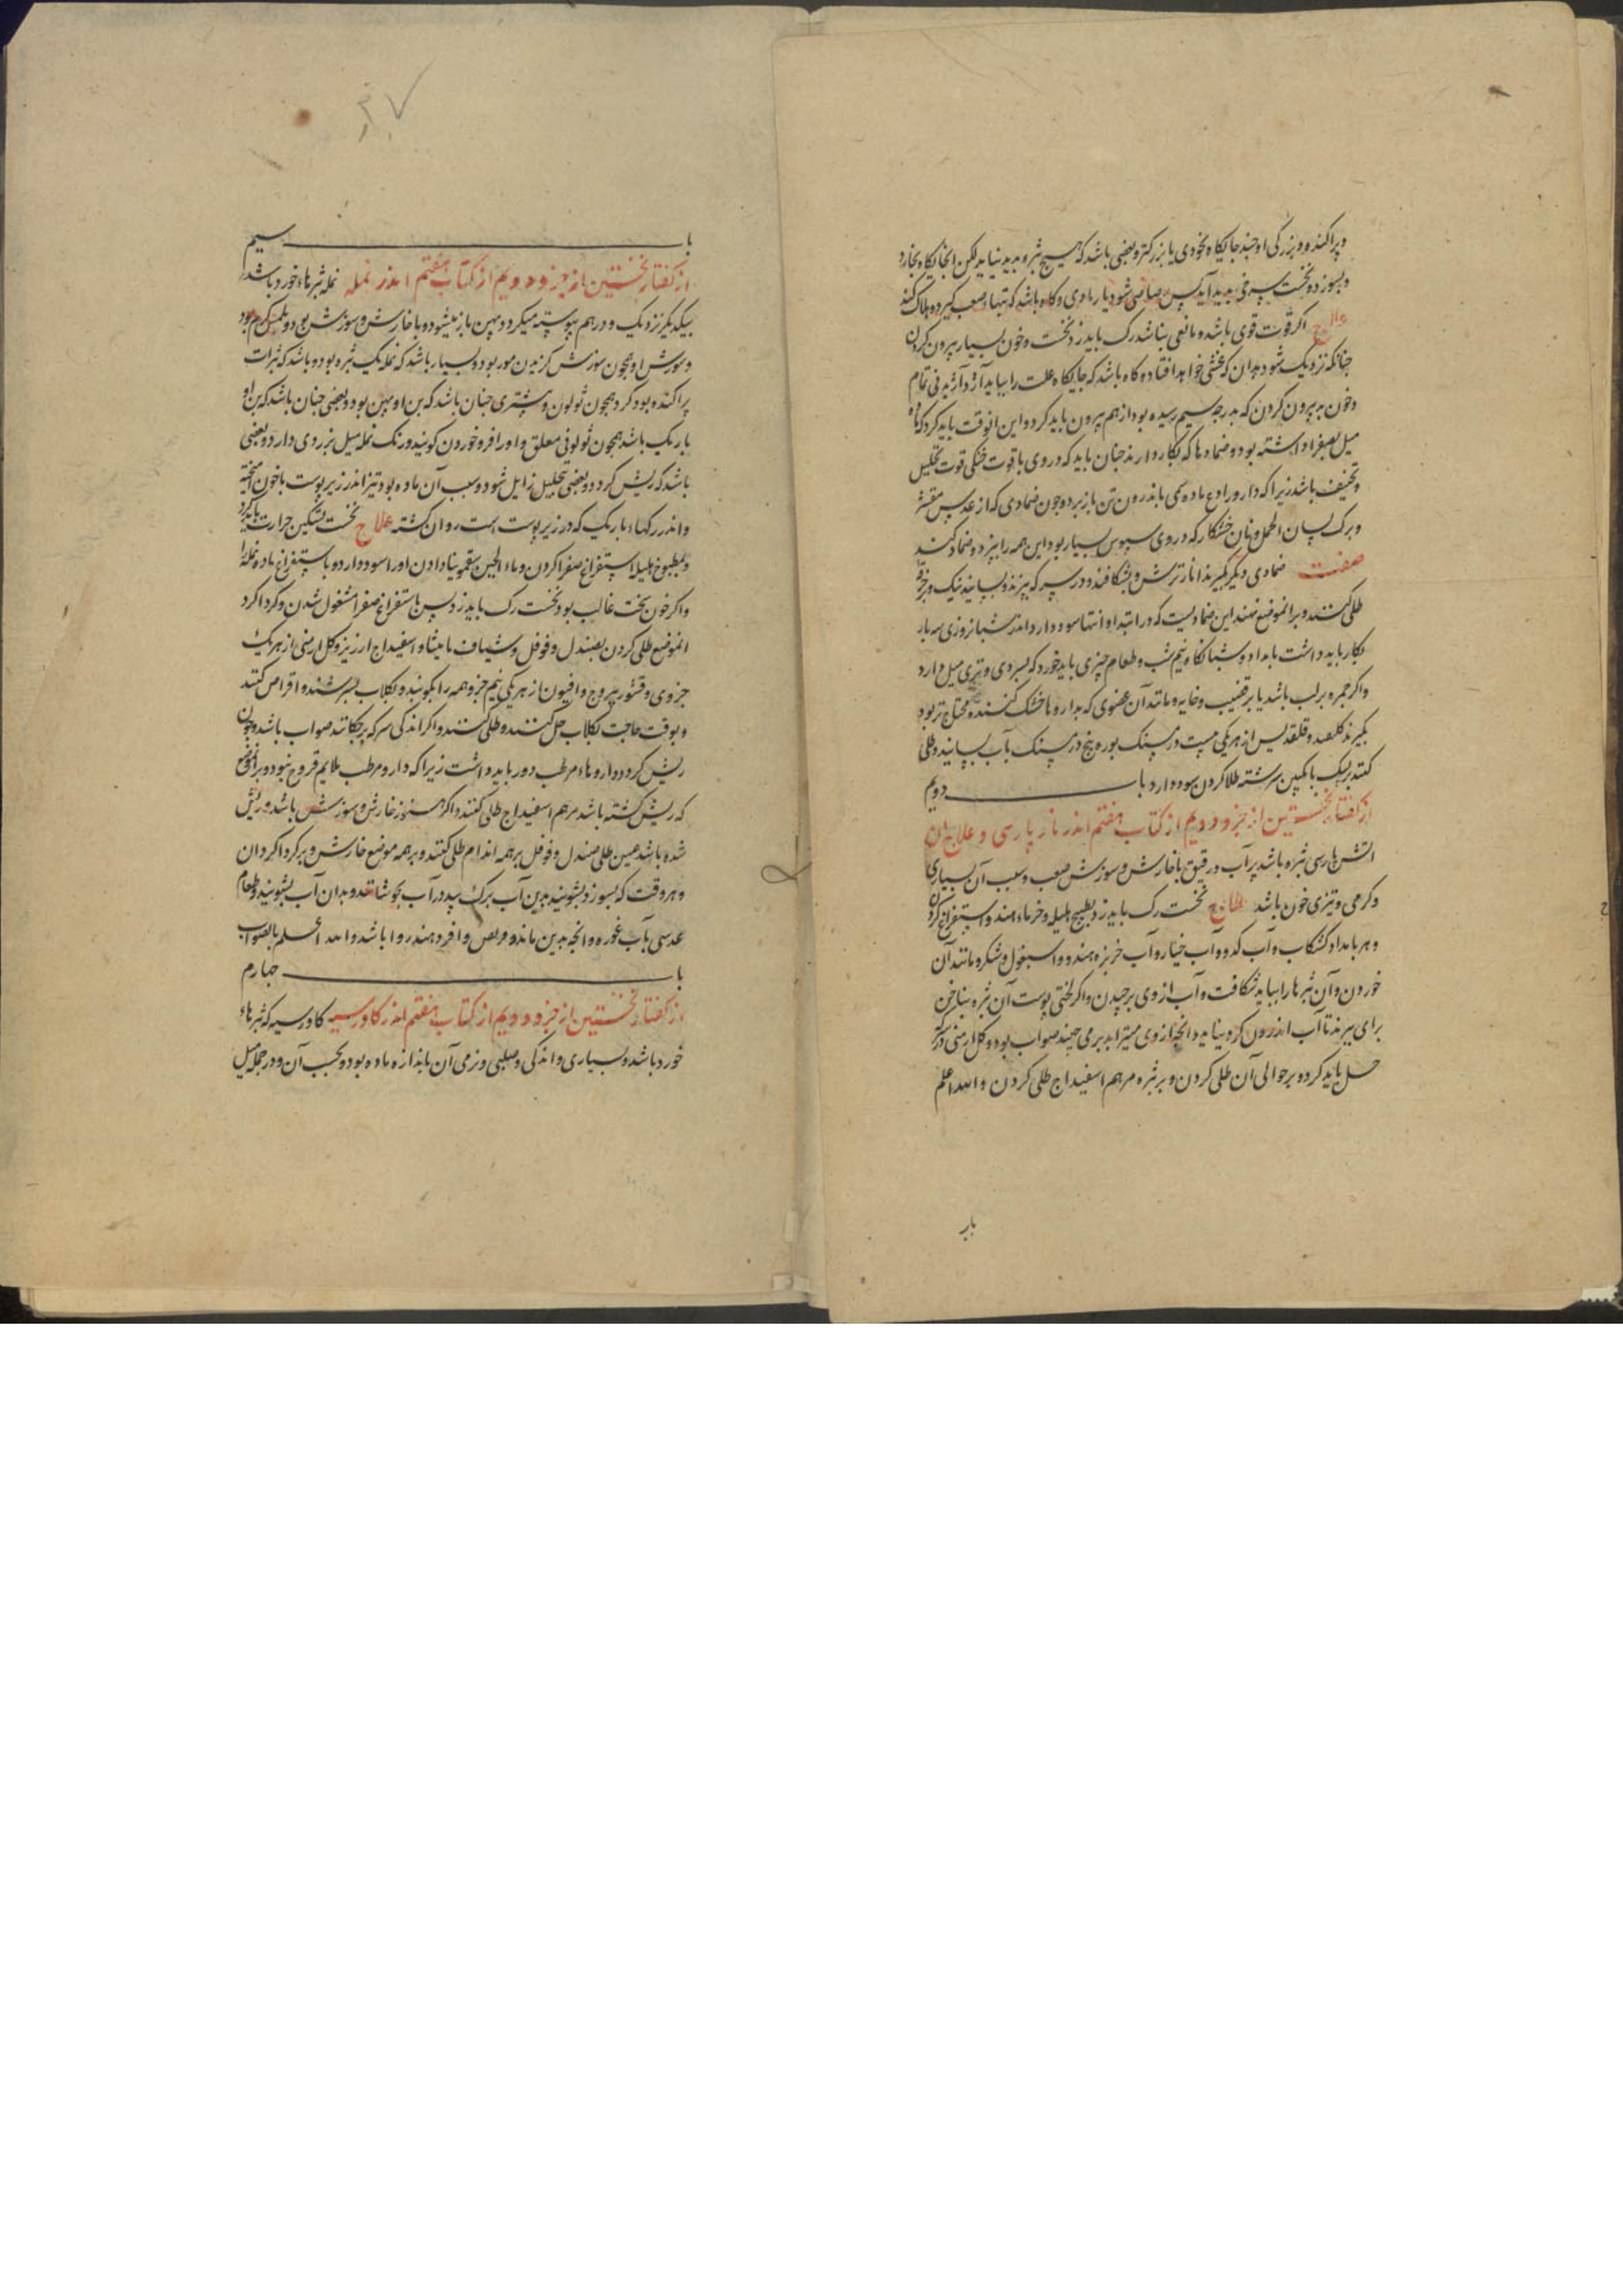 و پراکنده و بزرگی او چند جایگاه نخودی یا بزرکتر و بعضی باشد که هیچ بثره پدید نیاید لکن انجایکاه بخارد
و بسوزد و نخست سرخی پدید آید پس رمادی و کاه باشد که تبهاء صعب کیرد و هلاک کند
علاج اکر قوت قوی باشد و مانعی نباشد رک باید زد نخست و خون بسیار بیرون کردن
چنانکه نزدیک شود بدان که غشی خواهد افتاد و کاه باشد که جایکاه علت را بباید آژد آژیدنی تمام
و خون بیرون کردن که بدرجه سیم رسیده بود از هم بیرون باید کرد و این انوقت باید کرد که ماده
میل بصفرا داشته بود و ضمادها که بکار دارند چنان باید که در وی با قوت خنکی قوت تحلیل
و تجفیف باشد زیرا که دارو رادع ماده را باندرون تن باز برد و چون ضمادی که از عدس مقشر
و برک لسان الحمل و نان خشکار که در وی سبوس بسیار بود این همه را بپزد و ضماد کنند
صفت ضمادی دیکر بکیرند انار ترش و بشکافند و در سرکه بپزند و بسایند نیک و بر خرقه
طلی کنند و بر انموضع نهند این ضمادیست که در ابتدا و انتها سود دارد اندر شبانروزی سه بار
بکار باید داشت بامداد و شبانکاه و نیم شب و طعام چیزی باید خورد که بسردی و تری میل دارد
و اکر جمره بر لب باشد یا بر قضیب و خایه و مانند آن عضوی که بداروها خشک کننده محتاج تر بود
بکیرند کلقند و قلقدیس از هریکی بیست درمسنک بوره پنج درمسنک بآب بسایند و طلی
کنند برسک با نکبین سرشته طلا کردن سود دارد باب دویم
از کفتار نخستین از جزو دویم از کتاب هفتم اندر نار پارسی و علاج ان
اتش پارسی بثره باشد پر آب رقیق با خارش و سوزش صعب و سبب آن بسیاری
و کرمی و تیزی خون باشد علاج نخست رک باید زد و بطبیخ هلیله و خرماء هند و استفراغ کردن
و هر بامداد کشکاب و آب کدو و آب خیار و آب خربزه هندو و اسبغول و شکر و مانند آن
خوردن و آن بثرها را بباید شکافت و آب از وی برچیدن و اکر لختی پوست آن بثره بناخن
برای ببرند تا آب اندرون کرد نیاید و انچه از وی میترابد بر می چیند صواب بود و کل ارمنی در سرکه
حل باید کرد و بر حوالی آن طلی کردن و بر بثره مرهم اسفیداج طلی کردن والله اعلم
باب
باب سیم
از کفتار نخستین از جزو دویم از کتاب هفتم اندر نمله نمله بثرهاء خورد باشد
بیکدیکر نزدیک و در هم پیوسته میکردد و پهن باز میشود و با خارش و سوزش بود و بلمس کرم بود
و سوزش او همچون سوزش کزیدن مور بود و بسیار باشد که نمله یک بثره بود و باشد که بثرات
پراکنده بود کرد همچون ثولول و بیشتری چنان باشد که بن او پهن بود و بعضی چنان باشد که بن او
باریک باشد همچون ثولولی معلق و او را فروخوردن کویند و رنک نمله میل بزردی دارد و بعضی
باشد که ریش کردد و بعضی بتحلیل زایل شود و سبب آن ماده بود تیز اندر زیر پوست با خون امیخته
و اندر رکهاء باریک که در زیر پوست است روان کشته علاج نخست تسکین حرارت باید کرد
و بمطبوخ هلیله استفراغ صفرا کردن و ماء الجبن بسقمونیا دادن او را سود دارد و باستفراغ ماده نمله را
و اکر خون سخت غالب بود نخست رک باید زد پس باستفراغ صفرا مشغول شدن و کرد اکرد
انموضع طلی کردن بصندل و فوفل و شیاف مامیثا و اسفیداج ارزیز و کل ارمنی از هر یک
جزوی و قشور یبروج و افیون از هر یکی نیم جزو همه را بکوبند و بکلاب بسرشند و اقراص کنند
و بوقت حاجت بکلاب حل کنند و طلی کنند و اکر اندکی سرکه بر چکانند صواب باشد و چون
ریش کردد داروهاء مرطب دور باید داشت زیرا که دارو مرطب ملایم قروح نبود و بر انموضع
که ریش کشته باشد مرهم اسفیداج طلی کنند و اکر هنوز خارش و سوزش باشد و ریش
شده باشد همین طلی صندل و فوفل بر همه اندام طلی کنند و بر همه موضع خارش و بر کرداکرد ان
و هر وقت که بسوزد بشویند بدین آب برک بید در آب بجوشانند و بدان آب بشویند و طعام
عدسی بآب غوره و انچه بدین ماند و مریض وافر دهند روا باشد والله اعلم بالصواب
باب چهارم
از کفتار نخستین از جزو دویم از کتاب هفتم اندر کاورسیه کاورسیه که بثرهاء
خورد باشد و بسیاری و اندکی و صلبی و نرمی آن باندازه ماده بود و بحسب آن و در جمله میل